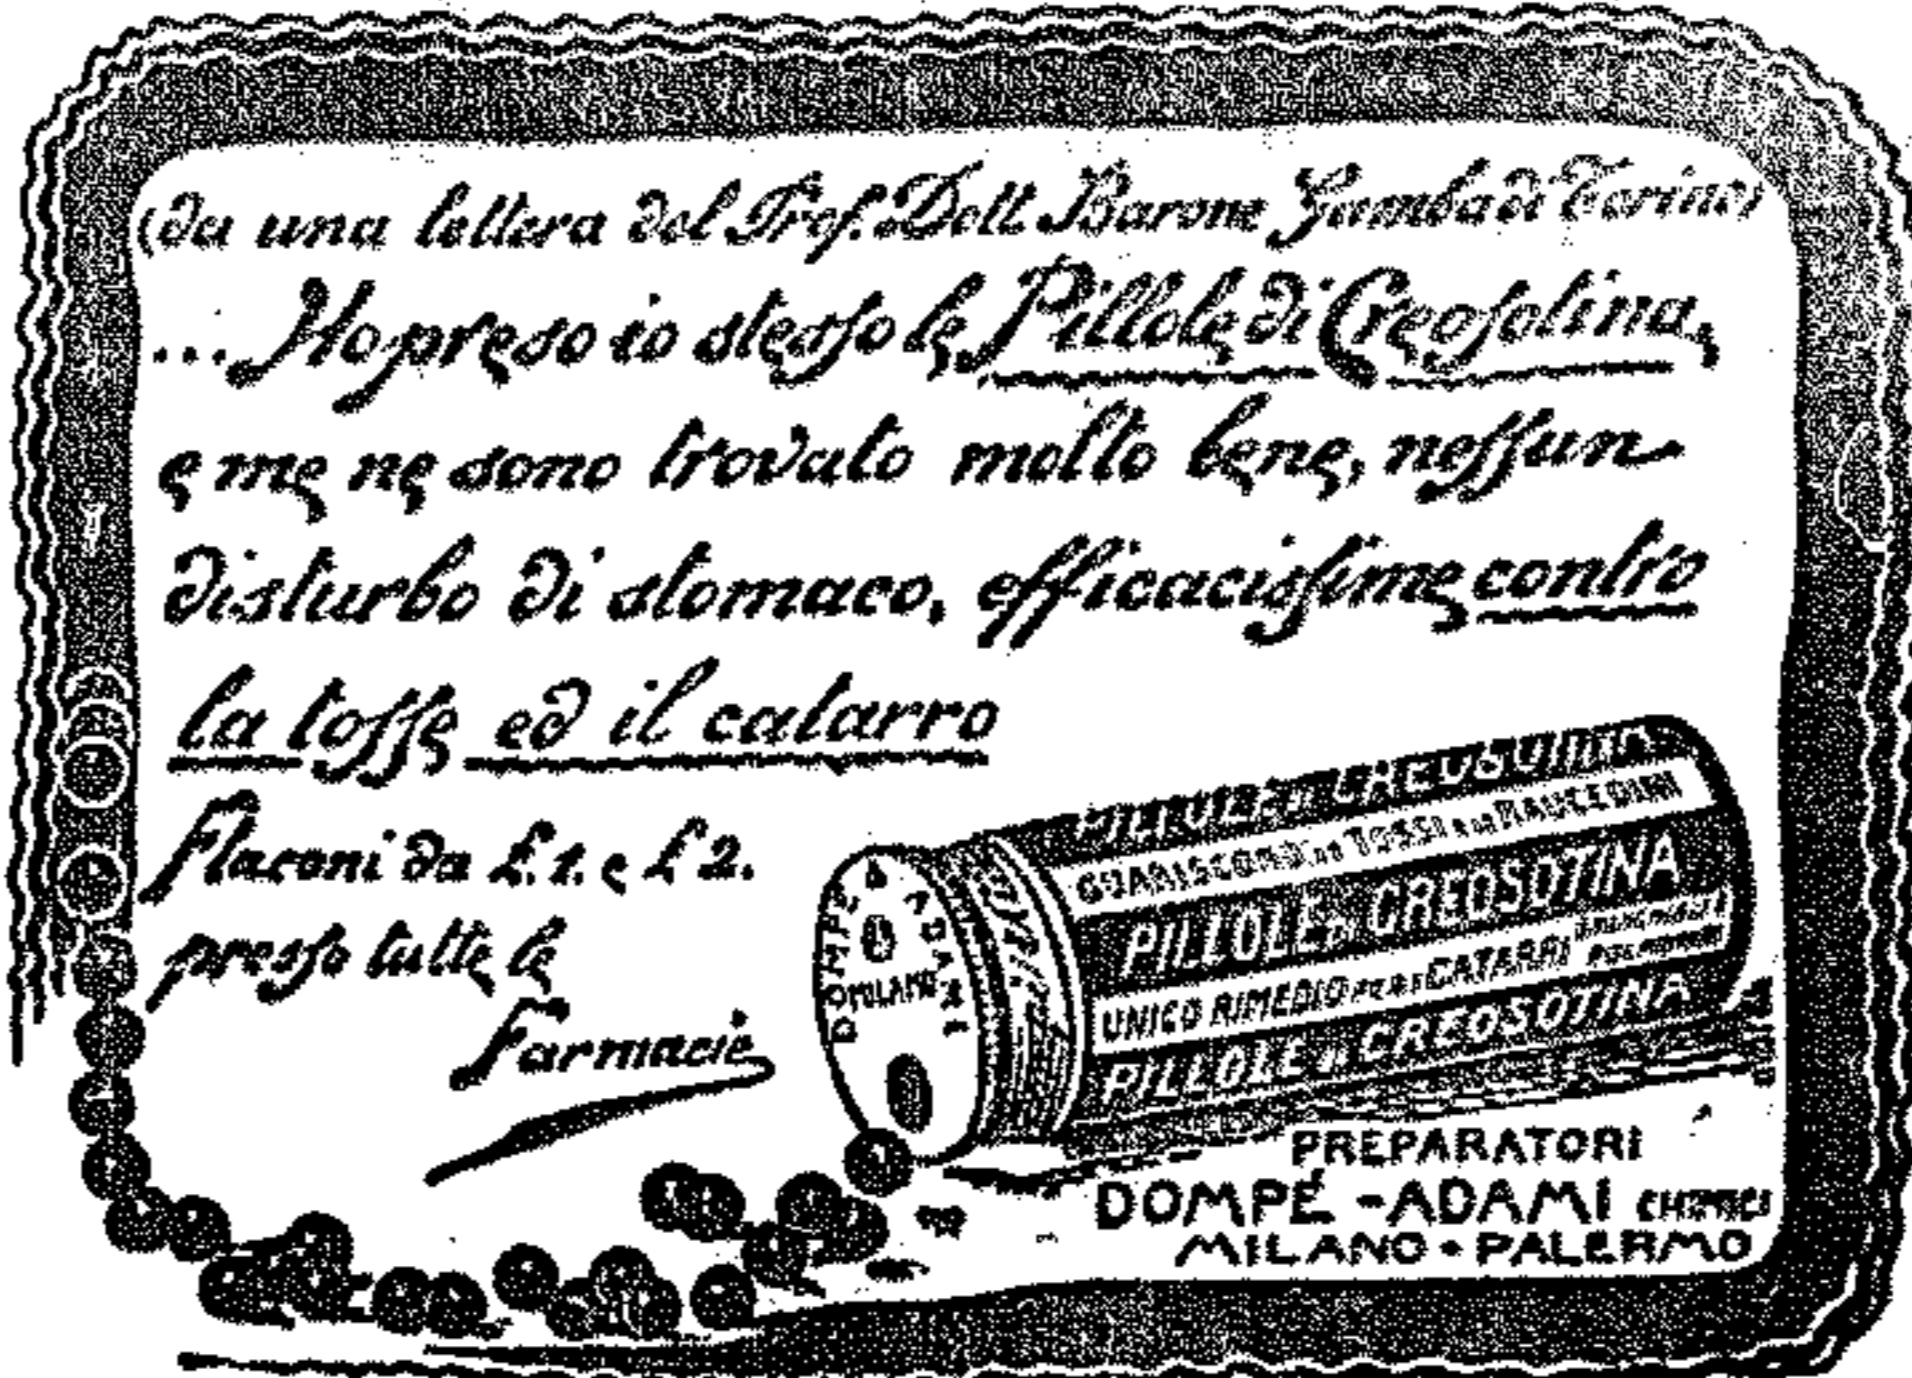 (da una lettera del Prof. Dott. Barone Gamba di Torino)
... Ho preso io stesso le Pillole di Creosotina,
e me ne sono trovato molto bene, nessun
disturbo di stomaco, efficacissime contro
la tosse ed il catarro
Flaconi da £. 1. e £ 2.
presso tutte le
Farmacie
DOMPÉ ADAMI
MILANO
PILLOLE DI CREOSOTINA
GUARISCONO LE TOSSI E LE RAUCEDINI
PILLOLE DI CREOSOTINA
UNICO RIMEDIO PER I CATARRI
PILLOLE DI CREOSOTINA
PREPARATORI
DOMPÉ - ADAMI
MILANO • PALERMO